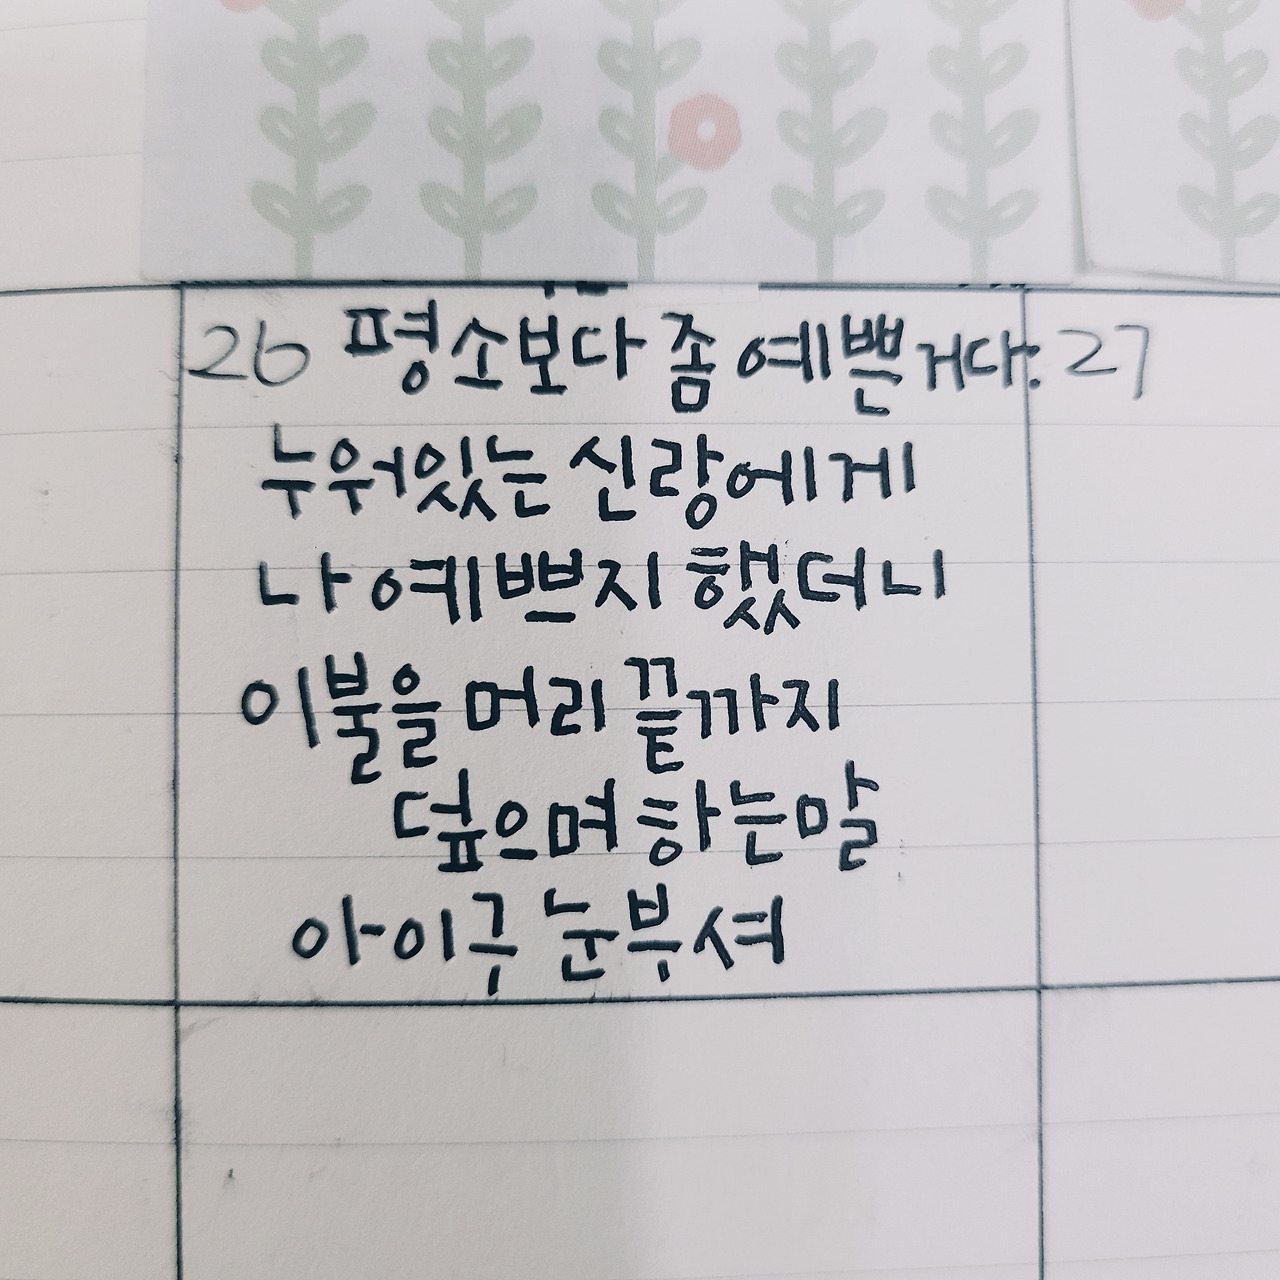 26 평소보다 좀 예쁜거다. 27
누워있는 신랑에게
나 예쁘지 했더니
이불을 머리 끝까지
덮으며 하는말
아이구 눈부셔